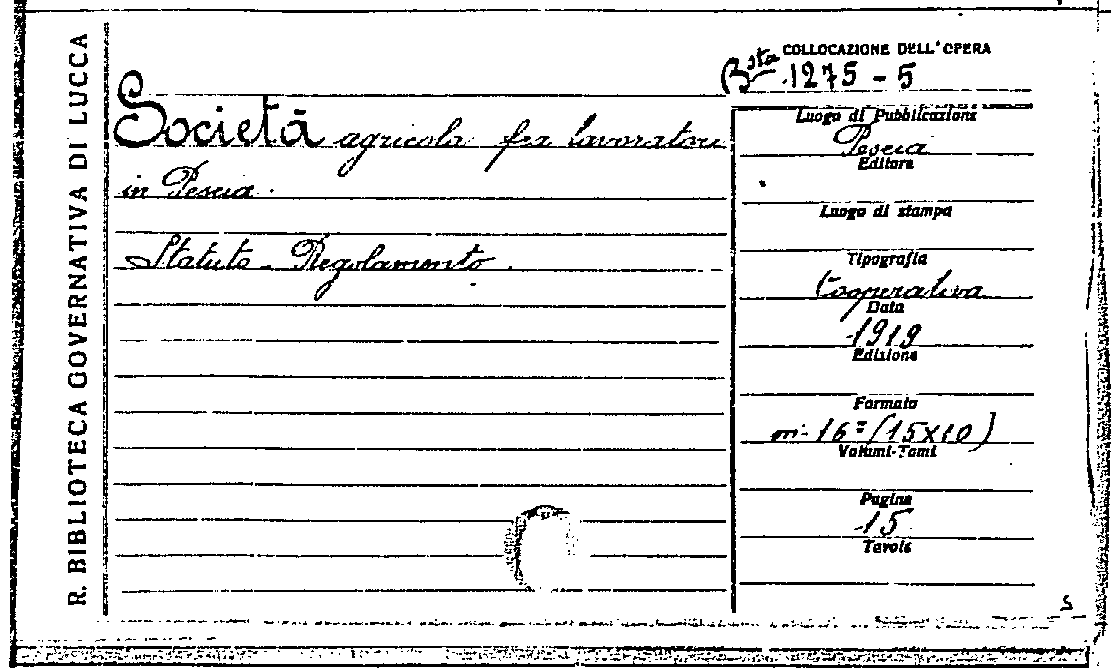 R. BIBLIOTECA GOVERNATIVA DI LUCCA
COLLOCAZIONE DELL'OPERA
Bsta 1275 - 5
Società agricola fra lavoratori
in Pescia.
Statuto - Regolamento.
Luogo di Pubblicazione
Pescia
Editore
Luogo di stampa
Tipografia
Cooperativa
Data
1919
Edizione
Formato
in-16º (15x10)
Volumi-Tomi
Pagine
15
Tavole
S